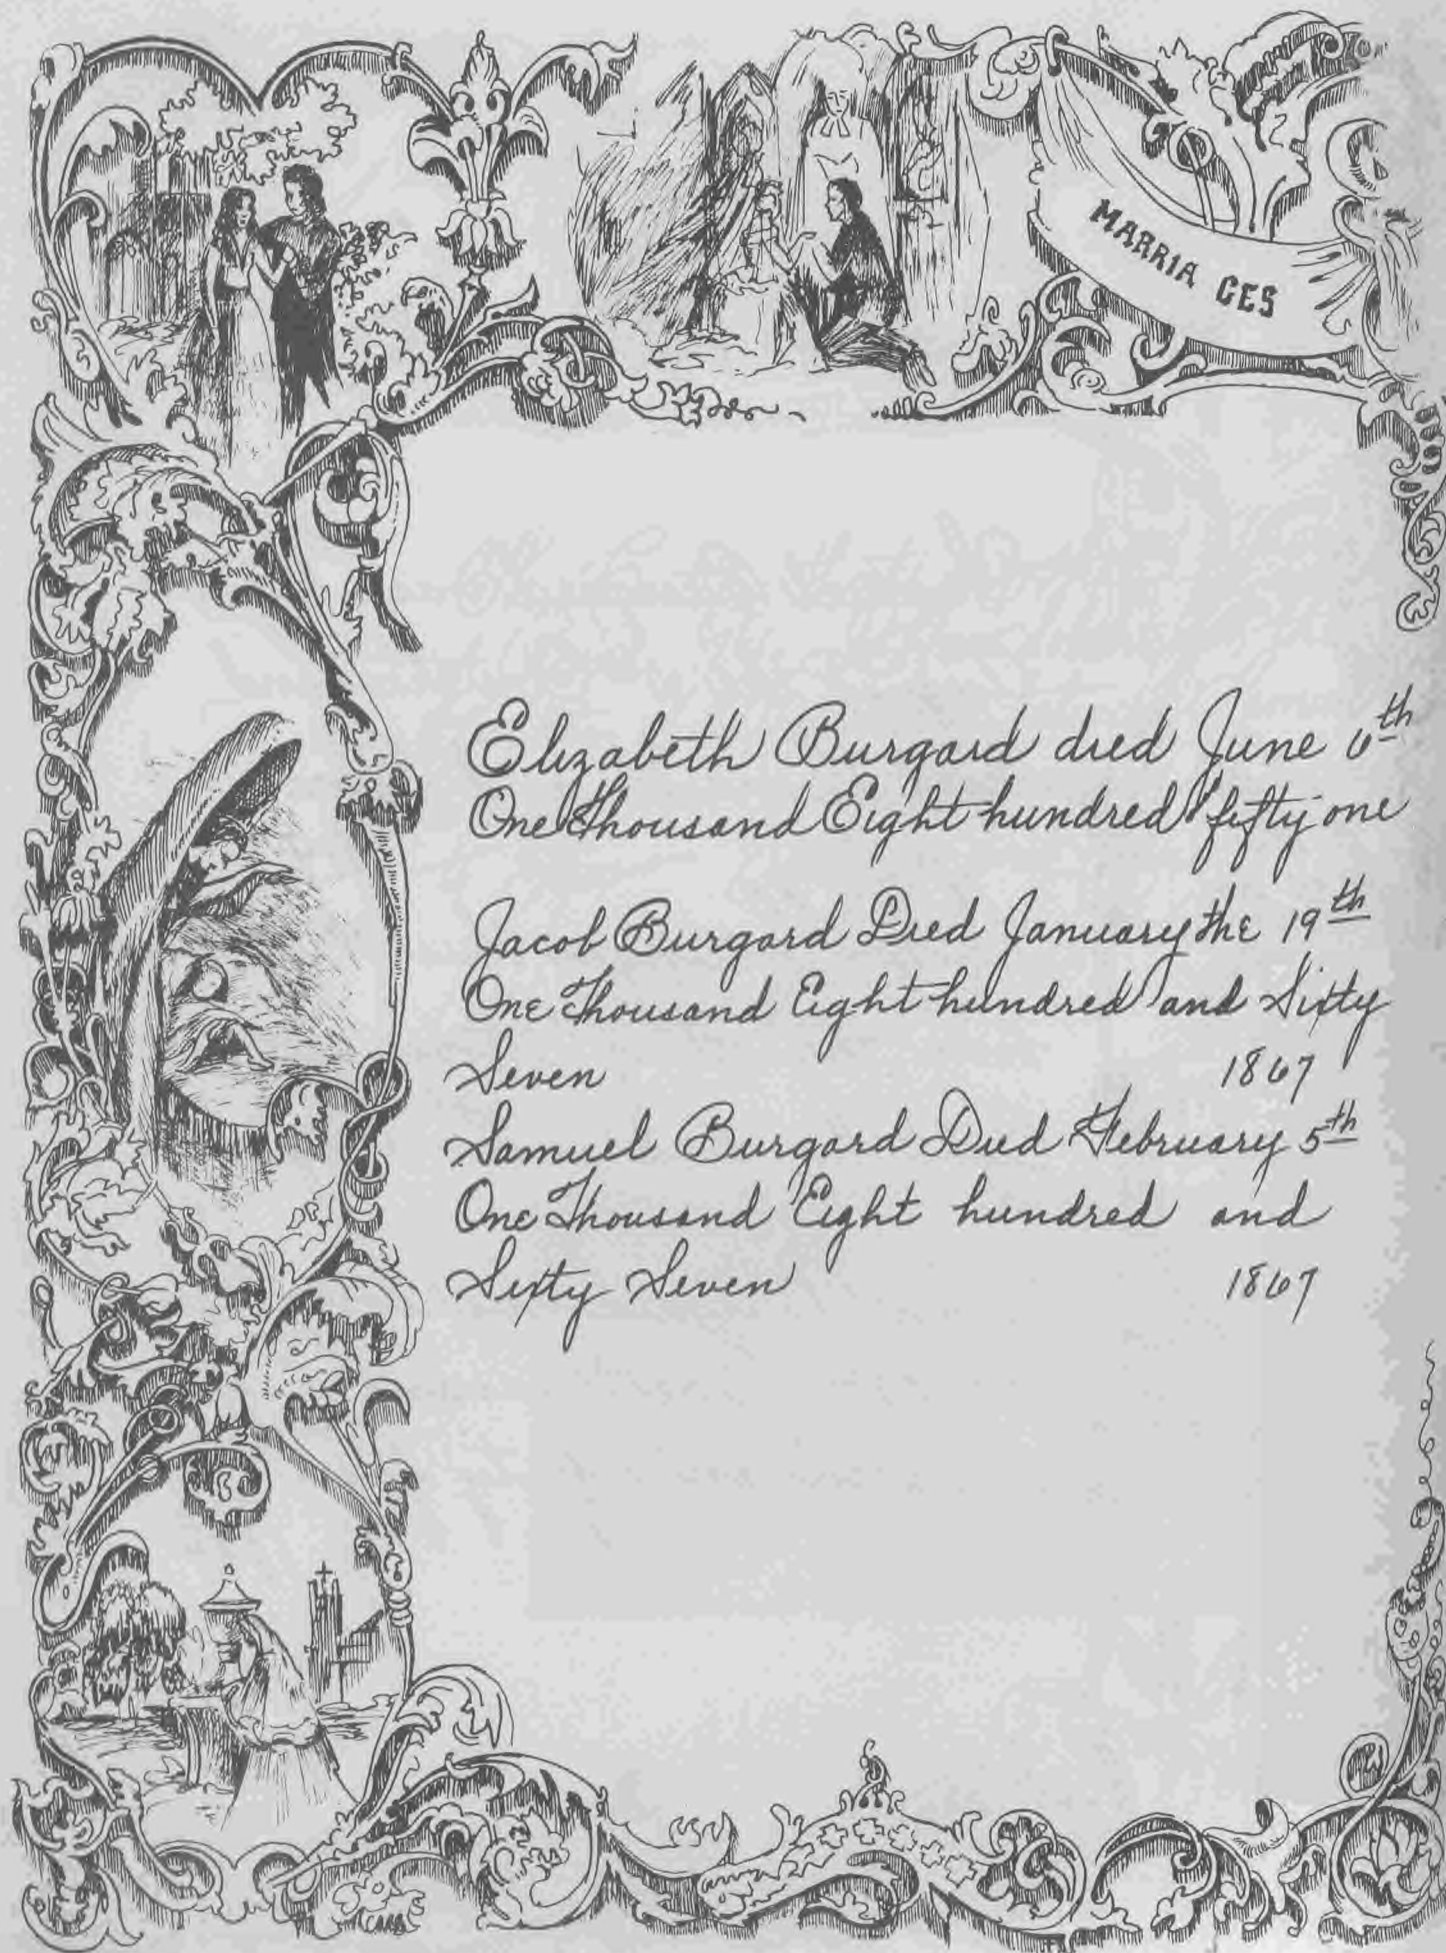 MARRIAGES
Elizabeth Burgard died June 6th
One Thousand Eight hundred fifty one
Jacob Burgard Died January the 19th
One Thousand Eight hundred and Sixty
Seven 1867
Samuel Burgard Died February 5th
One Thousand Eight hundred and
Sixty Seven 1867